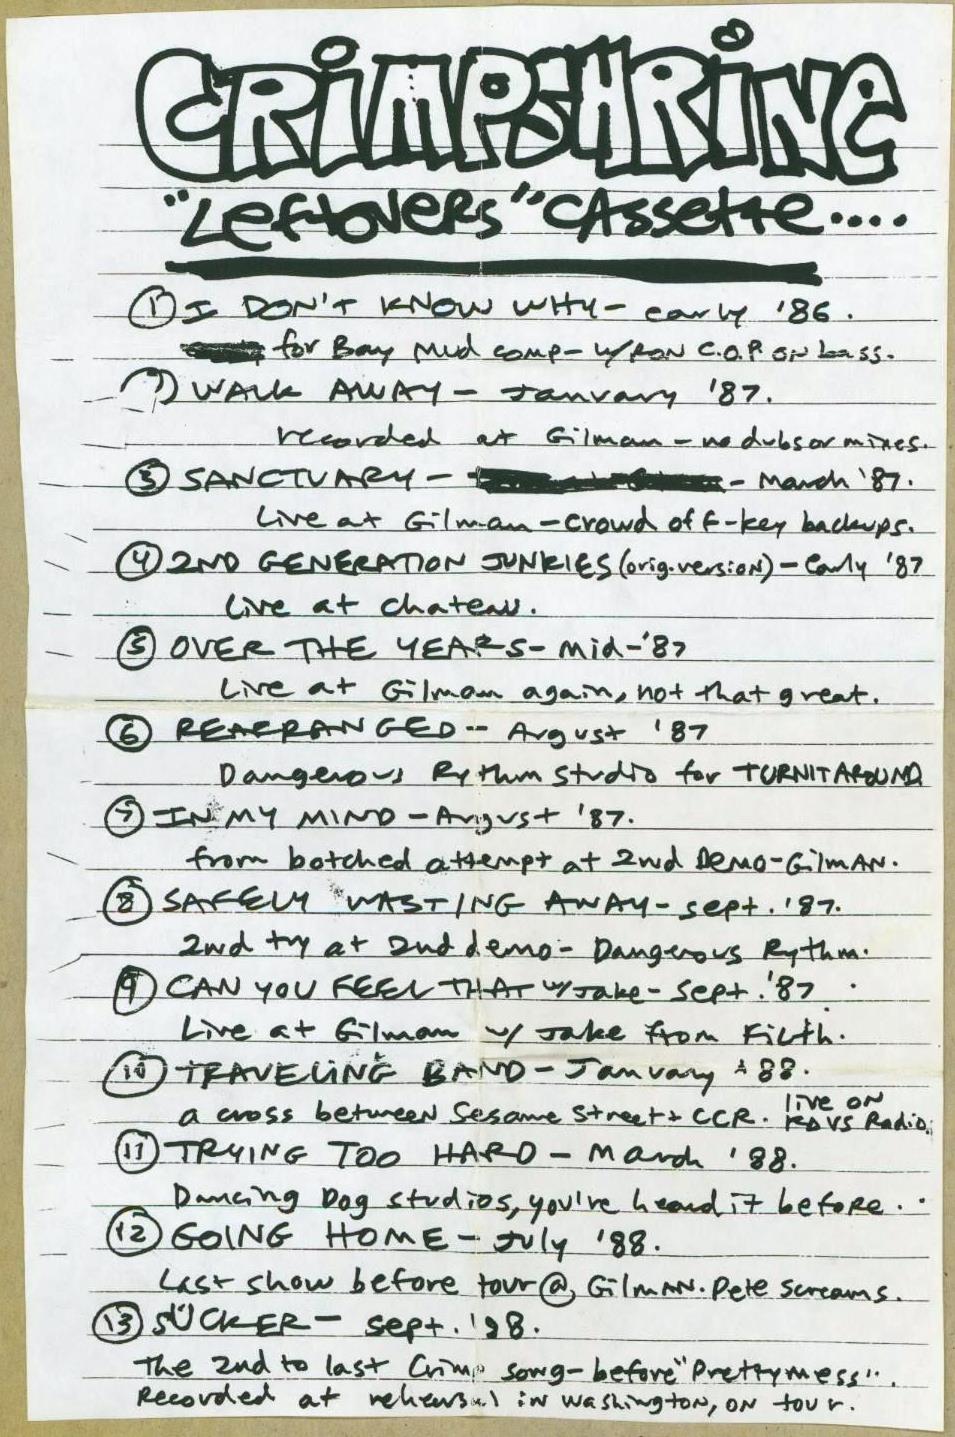 CRIMPSHRINE
"LEFTOVERS" CASSETTE....
1 I DON'T KNOW WHY - early '86.
for Bay Mud comp - w/RON C.O.P ON bass.
WALK AWAY - January '87.
recorded at Gilman - no dubs or mixes.
3 SANCTUARY - - March '87.
Live at Gilman - crowd of F-key backups.
4 2ND GENERATION JUNKIES (orig. version) - Early '87
Live at chateau.
5 OVER THE YEARS - Mid-'87
Live at Gilman again, not that great.
6 REARRANGED -- August '87
Dangerous Rythm studio for TURN IT AROUND
7 IN MY MIND - August '87.
from botched attempt at 2nd Demo - GilmAN.
8 SAFELY WASTING AWAY - sept. '87.
2nd try at 2nd demo - Dangerous Rythm.
9 CAN YOU FEEL THAT w/Jake - Sept. '87
Live at Gilman w/ Jake from Filth.
10 TRAVELING BAND - January '88.
a cross between Sesame Street + CCR. live on
KDVS Radio.
11 TRYING TOO HARD - March '88.
Dancing Dog studios, you've heard it before.
12 GOING HOME - July '88.
Last show before tour @ GilmAN. Pete screams.
13 SUCKER - sept. '88.
The 2nd to last Crimp song - before "Pretty mess".
Recorded at rehearsal in Washington, on tour.